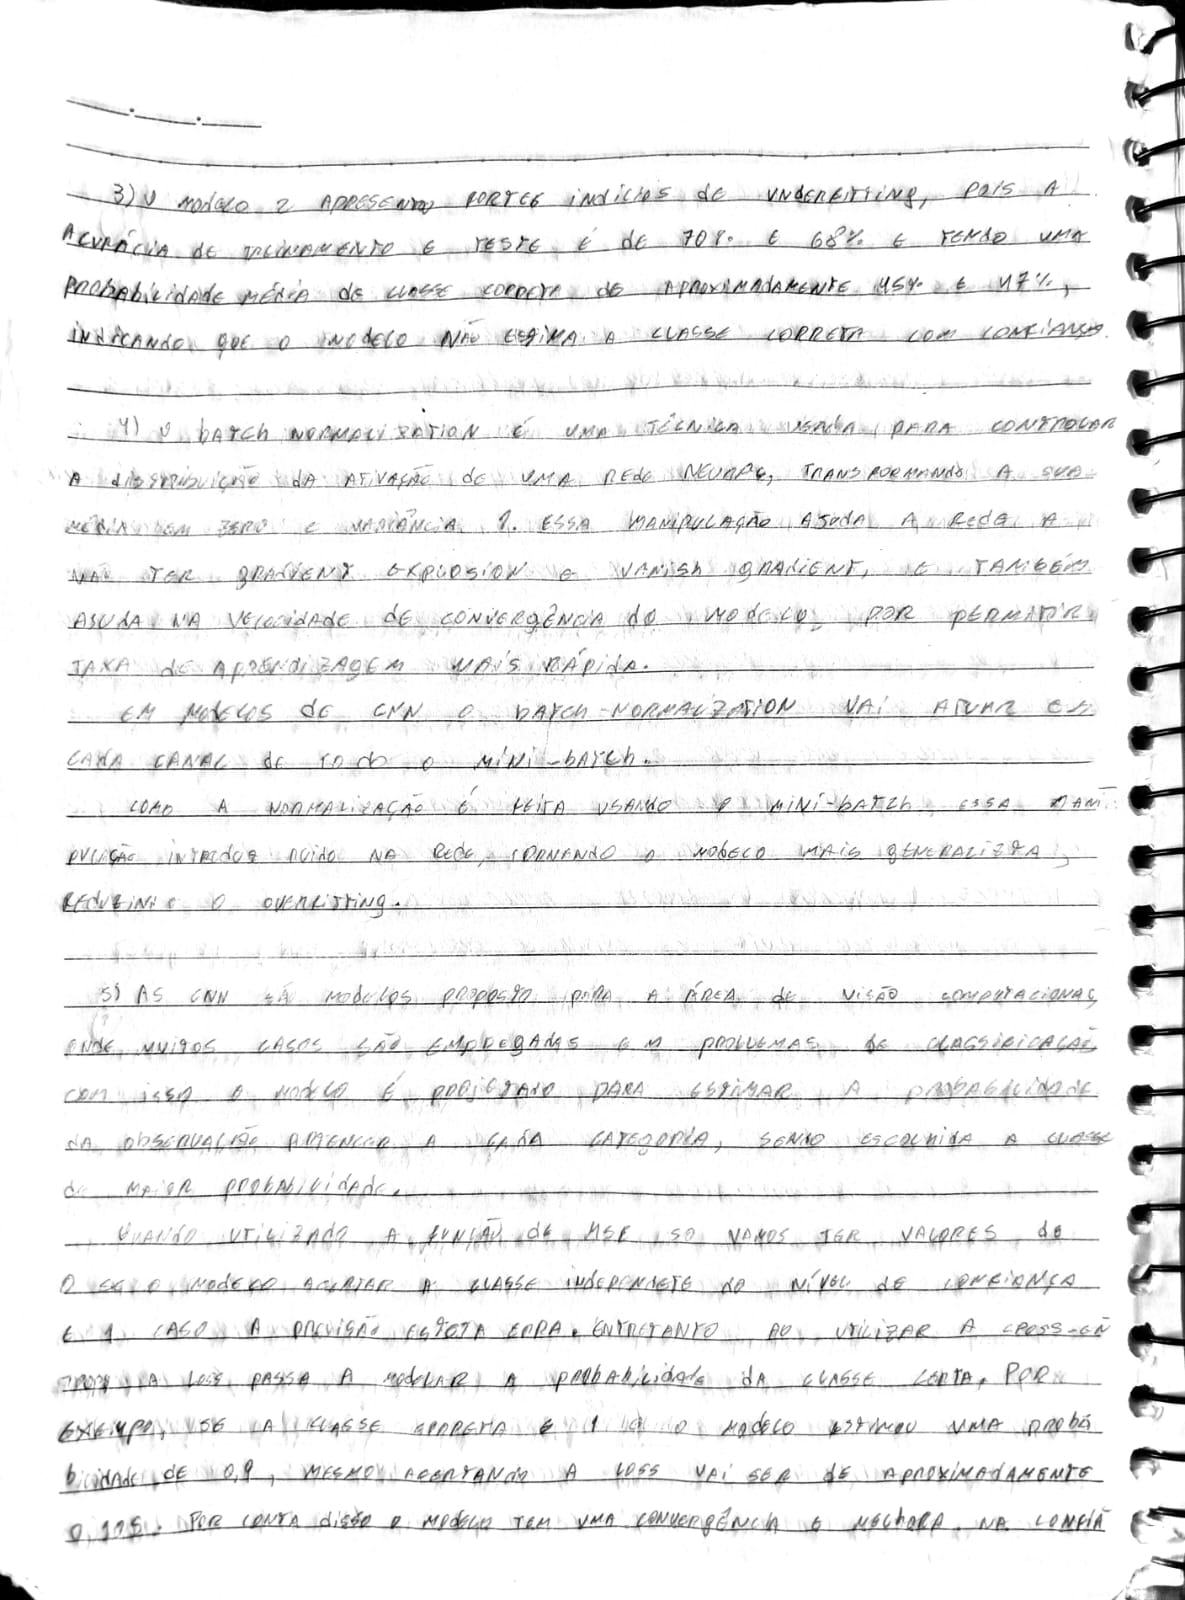 3) O MODELO 2 APRESENTA FORTES INDÍCIOS DE UNDERFITTING, POIS A
ACURÁCIA DE TREINAMENTO E TESTE É DE 70% E 68% E TENDO UMA
PROBABILIDADE MÉDIA DE CLASSE CORRETA DE APROXIMADAMENTE 45% E 47%,
INDICANDO QUE O MODELO NÃO ESTIMA A CLASSE CORRETA COM CONFIANÇA
4) O BATCH NORMALIZATION É UMA TÉCNICA PARA CONTROLAR
A DISTRIBUIÇÃO DA ATIVAÇÃO DE UMA REDE NEURAL, TRANSFORMANDO A SUA
MÉDIA EM ZERO E VARIÂNCIA 1. ESSA MANIPULAÇÃO AJUDA A REDE A
NÃO TER GRADIENT EXPLOSION E VANISH GRADIENT, E TAMBÉM
AJUDA NA VELOCIDADE DE CONVERGÊNCIA DO MODELO, POR PERMITIR
TAXA DE APRENDIZAGEM MAIS RÁPIDA.
EM MODELOS DE CNN O BATCH-NORMALIZATION VAI ATUAR EM
CADA CANAL DE TODO O MINI-BATCH.
COMO A NORMALIZAÇÃO É FEITA USANDO O MINI-BATCH, ESSA MANI
PULAÇÃO INTRODUZ RUIDO NA REDE, TORNANDO O MODELO MAIS GENERALIZTA,
REDUZINDO O OVERFITTING.
5) AS CNN SÃ MODELOS PROPOSTO PARA A ÁREA DE VISÃO COMPUTACIONAL,
ONDE MUITOS CASOS SÃO EMPREGADAS EM PROBLEMAS DE CLASSIFICAÇÃO
COM ISSO O MODELO É PROJETADO PARA ESTIMAR A PROBABILIDADE
DA OBSERVAÇÃO PERTENCER A CADA CATEGORIA, SENDO ESCOLHIDA A CLASSE
DE MAIOR PROBABILIDADE.
QUANDO UTILIZADO A FUNÇÃO DE MSE SO VAMOS TER VALORES DE
0 SE O MODELO ACERTAR A CLASSE INDEPENDETE DO NÍVEL DE CONFIANÇA
E 1 CASO A PREVISÃO ESTEJA ERRA. ENTRETANTO AO UTILIZAR A CROSS-EN
TROPY A LOSS PASSA A MODELAR A PROBABILIDADE DA CLASSE CERTA. POR
EXEMPO, SE A CLASSE CORRETA É 1 E O MODELO ESTIMOU UMA PROBA
BILIDADE DE 0,9, MESMO ACERTANDO A LOSS VAI SER DE APROXIMADAMENTE
0,105. POR CONTA DISSO O MODELO TEM UMA CONVERGÊNCIA E MELHORA NA CONFIÂ